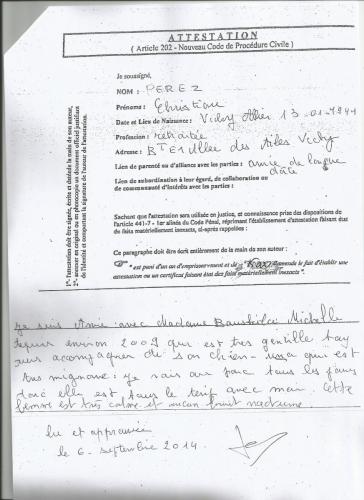 ATTESTATION
( Article 202 - Nouveau Code de Procédure Civile )
Je soussigné,
NOM : PEREZ
Prénoms : Christiane
Date et Lieu de Naissance : Vichy Allier 13-01-1941
Profession : retraitée
Adresse : des Ailes Vichy
Lien de parenté ou d'alliance avec les parties : amie de longue
date
Lien de subordination à leur égard, de collaboration ou
de communauté d'intérêts avec les parties :
1°- l'attestation doit être signée, écrite et datée de la main de son auteur,
2°- annexer en original ou en photocopie un document officiel justifiant
de l'identité et comportant la signature de l'auteur de l'attestation.
Sachant que l'attestation sera utilisée en justice, et connaissance prise des dispositions de
l'article 441-7 - 1er alinéa du Code Pénal, réprimant l'établissement d'attestation faisant état
de faits matériellement inexacts, ci-après rappelées :
Ce paragraphe doit être écrit entièrement de la main de son auteur :
" est puni d'un an d'emprisonnement et de d'amende le fait d'établir une
attestation ou un certificat faisant état des faits matériellement inexacts "
Je suis amie avec Madame Michelle
depuis environ 2009 qui est très gentille
accompagner de son chien qui est
très mignonne. Je vais au parc tous les jours
donc elle est tous le temp avec moi. Cette
femme est très calme et aucun bruit nocturne.
lu et approuvée
le 6 septembre 2014.